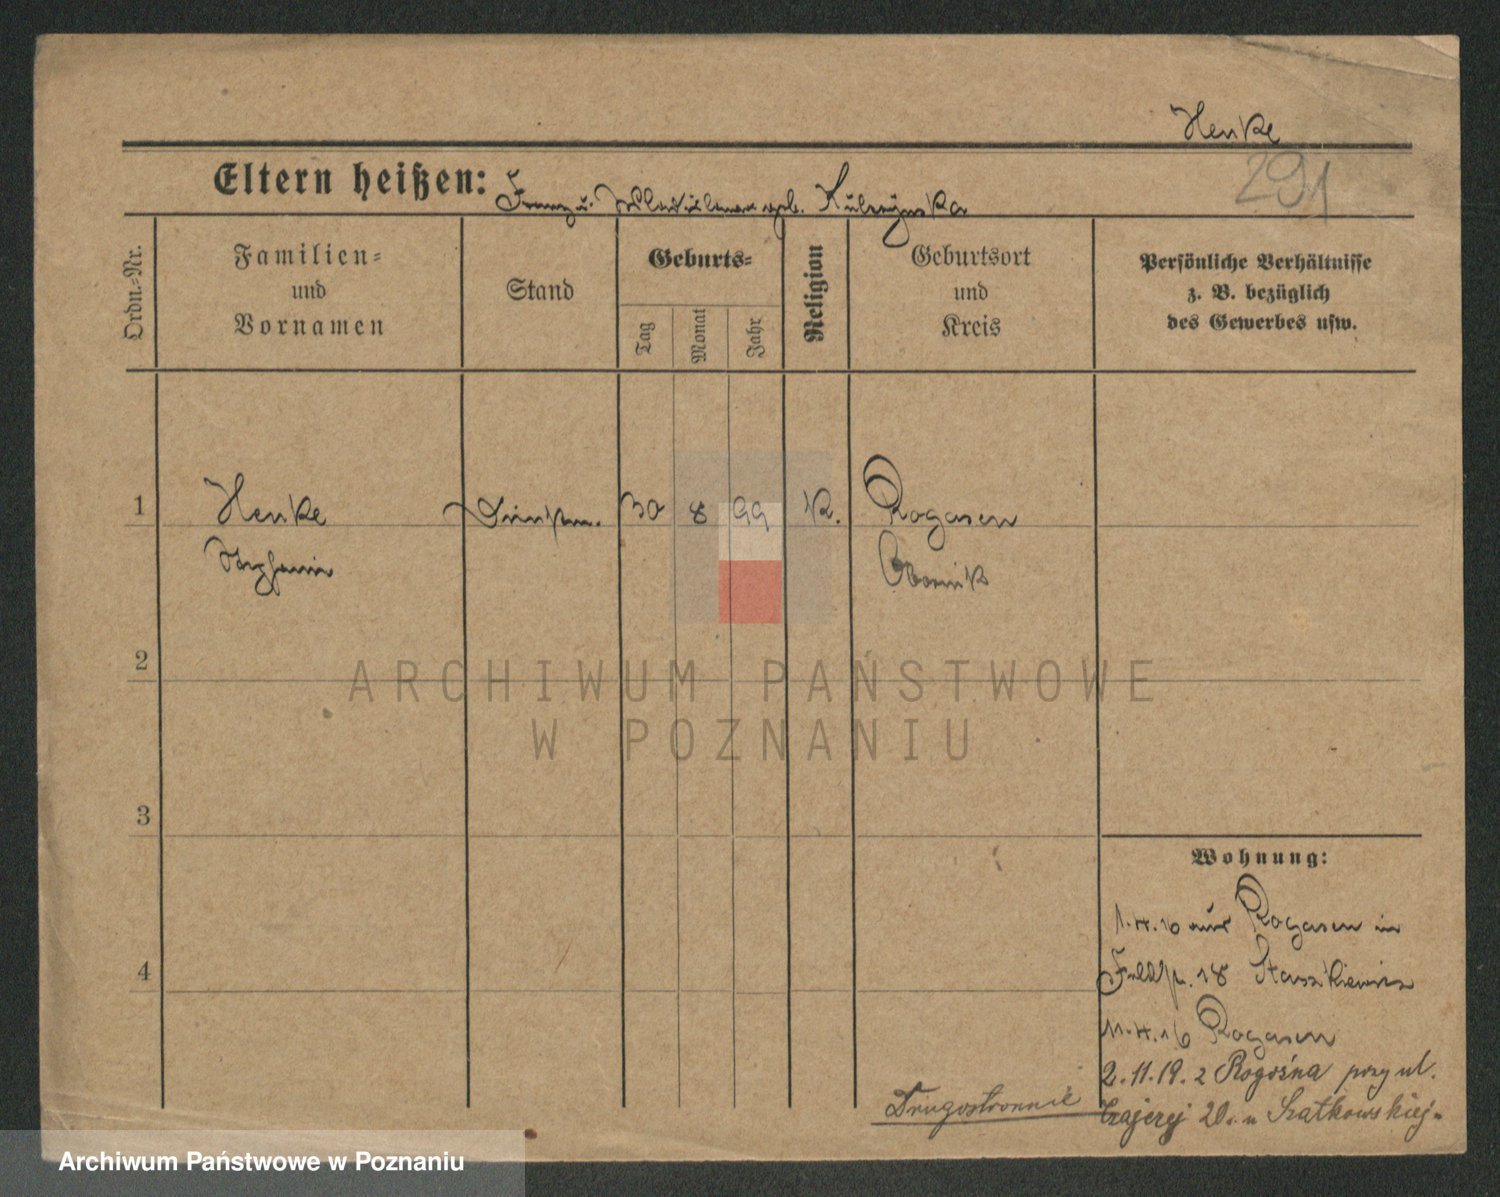 Henke
291
Eltern heißen: Franz u. Wladislawa geb.
Ordn.-Nr.
Familien-
und
Vornamen
Stand
Geburts-
Tag
Monat
Jahr
Religion
Geburtsort
und
Kreis
Persönliche Verhältnisse
z. B. bezüglich
des Gewerbes usw.
1 Henke 30 8 99 K. Rogasen
Stephanie Obornik
2
ARCHIWUM PAŃSTWOWE
W POZNANIU
3
Wohnung:
aus Rogasen in
4
18 Staszkiewicz
Rogasen
2.11.19. z Rogoźna przy ul.
Drugostronnie
20. u Szatkowskiej
Archiwum Państwowe w Poznaniu